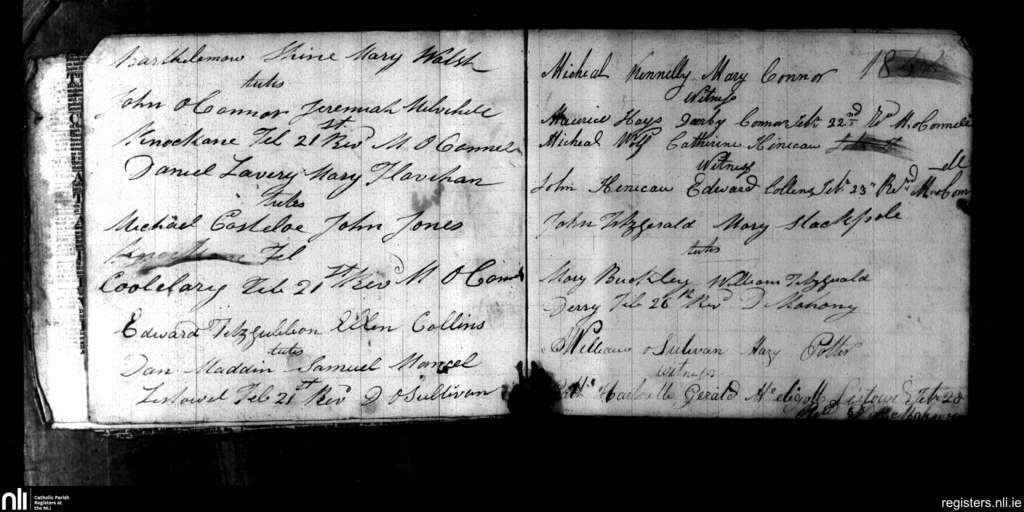 Barthelemow Shine Mary Walsh
tutes
John O Connor Jeremiah Mulvihill
Knockane Feb 21st Revd M O Connell
Daniel Lavery Mary Flavihan
tutes
Michael Costeloe John Jones
Feb
Coolclary Feb 21st Revd M O Conn
Edward Fitzgubbon Ellen Collins
tutes
Dan Maddin Samuel Mancel
Listowel Feb 21st Revd D O Sullivan
Micheal Kennelly Mary Connor 18
Witness
Maurice Hays Darby Connor Feb 22nd Rd M O Connell
Micheal Wolf Catherine Kinecau
Witness
John Henecau Edward Collins Feb 23rd Revd M O Conn
ell
John Fitzgerald Mary Slackpole
tutes
Mary Buckley William Fitzgerald
Derry Feb 26th Revd D Mahony
William O Sulivan Mary Potter
witness
Gerald Listowel Feb 28